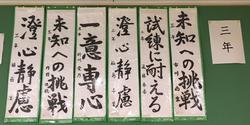 三年
未知への挑戦
試練に耐える
澄心静慮
一意専心
未知への挑戦
澄心静慮